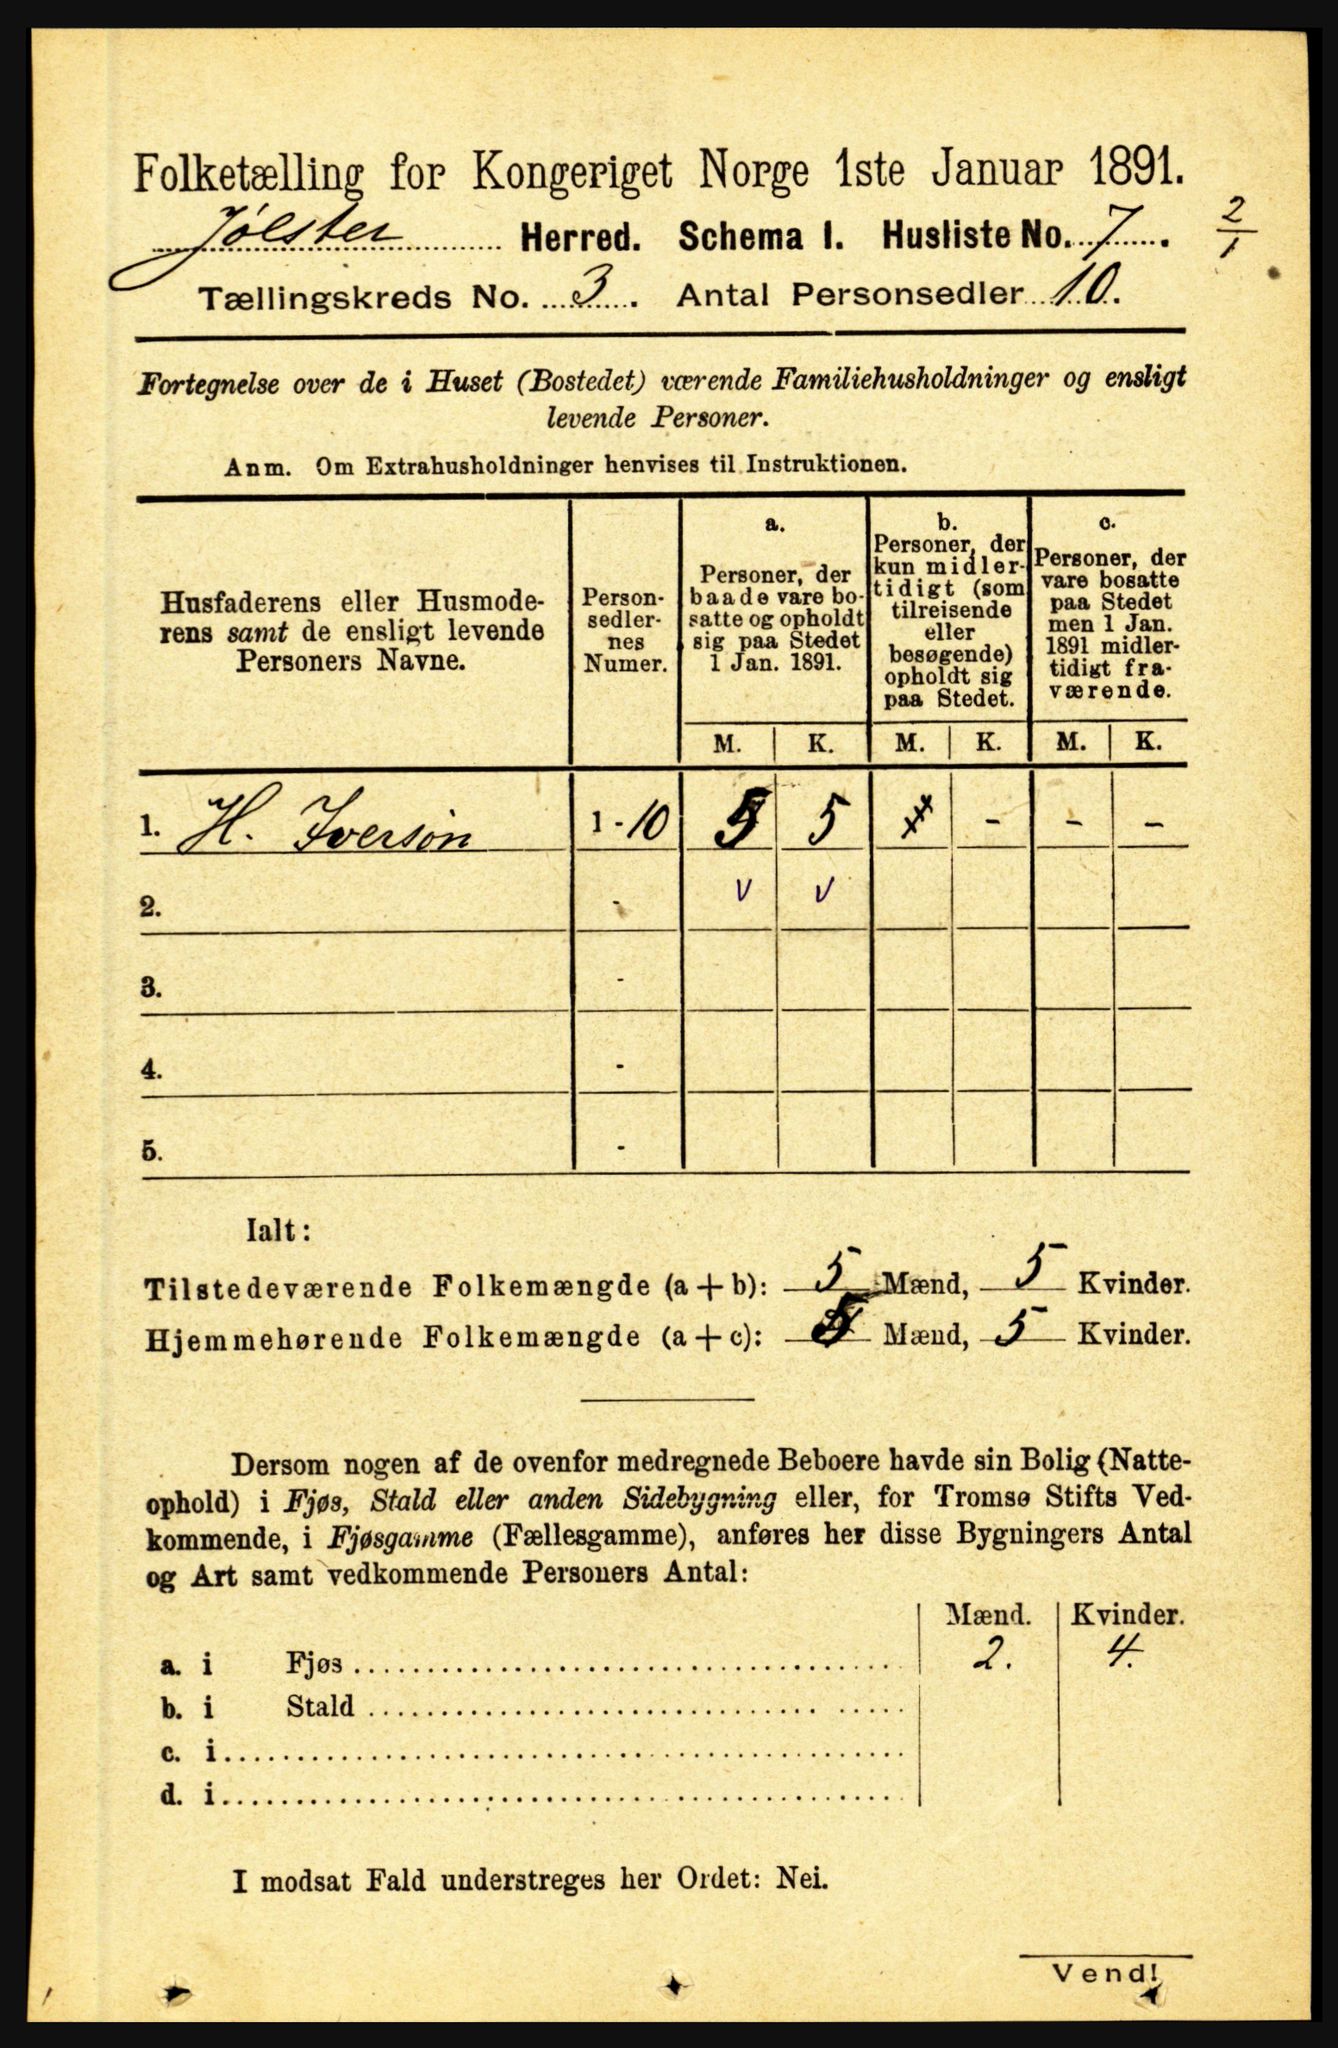 Folketælling for Kongeriget Norge 1ste Januar 1891.
Jølster Herred. Schema I. Husliste No. 7.
2/1
Tællingskreds No. 3. Antal Personsedler 10.
Fortegnelse over de i Huset (Bostedet) værende Familiehusholdninger og ensligt
levende Personer.
Anm. Om Extrahusholdninger henvises til Instruktionen.
Husfaderens eller Husmode-
rens samt de ensligt levende
Personers Navne.
Person-
sedler-
nes
Numer.
a.
Personer, der
baade vare bo-
satte og opholdt
sig paa Stedet
1 Jan. 1891.
b.
Personer, der
kun midler-
tidigt (som
tilreisende
eller
besøgende)
opholdt sig
paa Stedet.
c.
Personer, der
vare bosatte
paa Stedet
men 1 Jan.
1891 midler-
tidigt fra-
værende.
M. K. M. K. M. K.
1. H. Iverson 1 - 10 5 5 - - -
2. - v v
3. -
4. -
5. -
Ialt:
Tilstedeværende Folkemængde (a + b): 5 Mænd, 5 Kvinder.
Hjemmehørende Folkemængde (a + c): 5 Mænd, 5 Kvinder.
Dersom nogen af de ovenfor medregnede Beboere havde sin Bolig (Natte-
ophold) i Fjøs, Stald eller anden Sidebygning eller, for Tromsø Stifts Ved-
kommende, i Fjøsgamme (Fællesgamme), anføres her disse Bygningers Antal
og Art samt vedkommende Personers Antal:
Mænd. Kvinder.
a. i Fjøs 2. 4.
b. i Stald
c. i
d. i
I modsat Fald understreges her Ordet: Nei.
Vend!